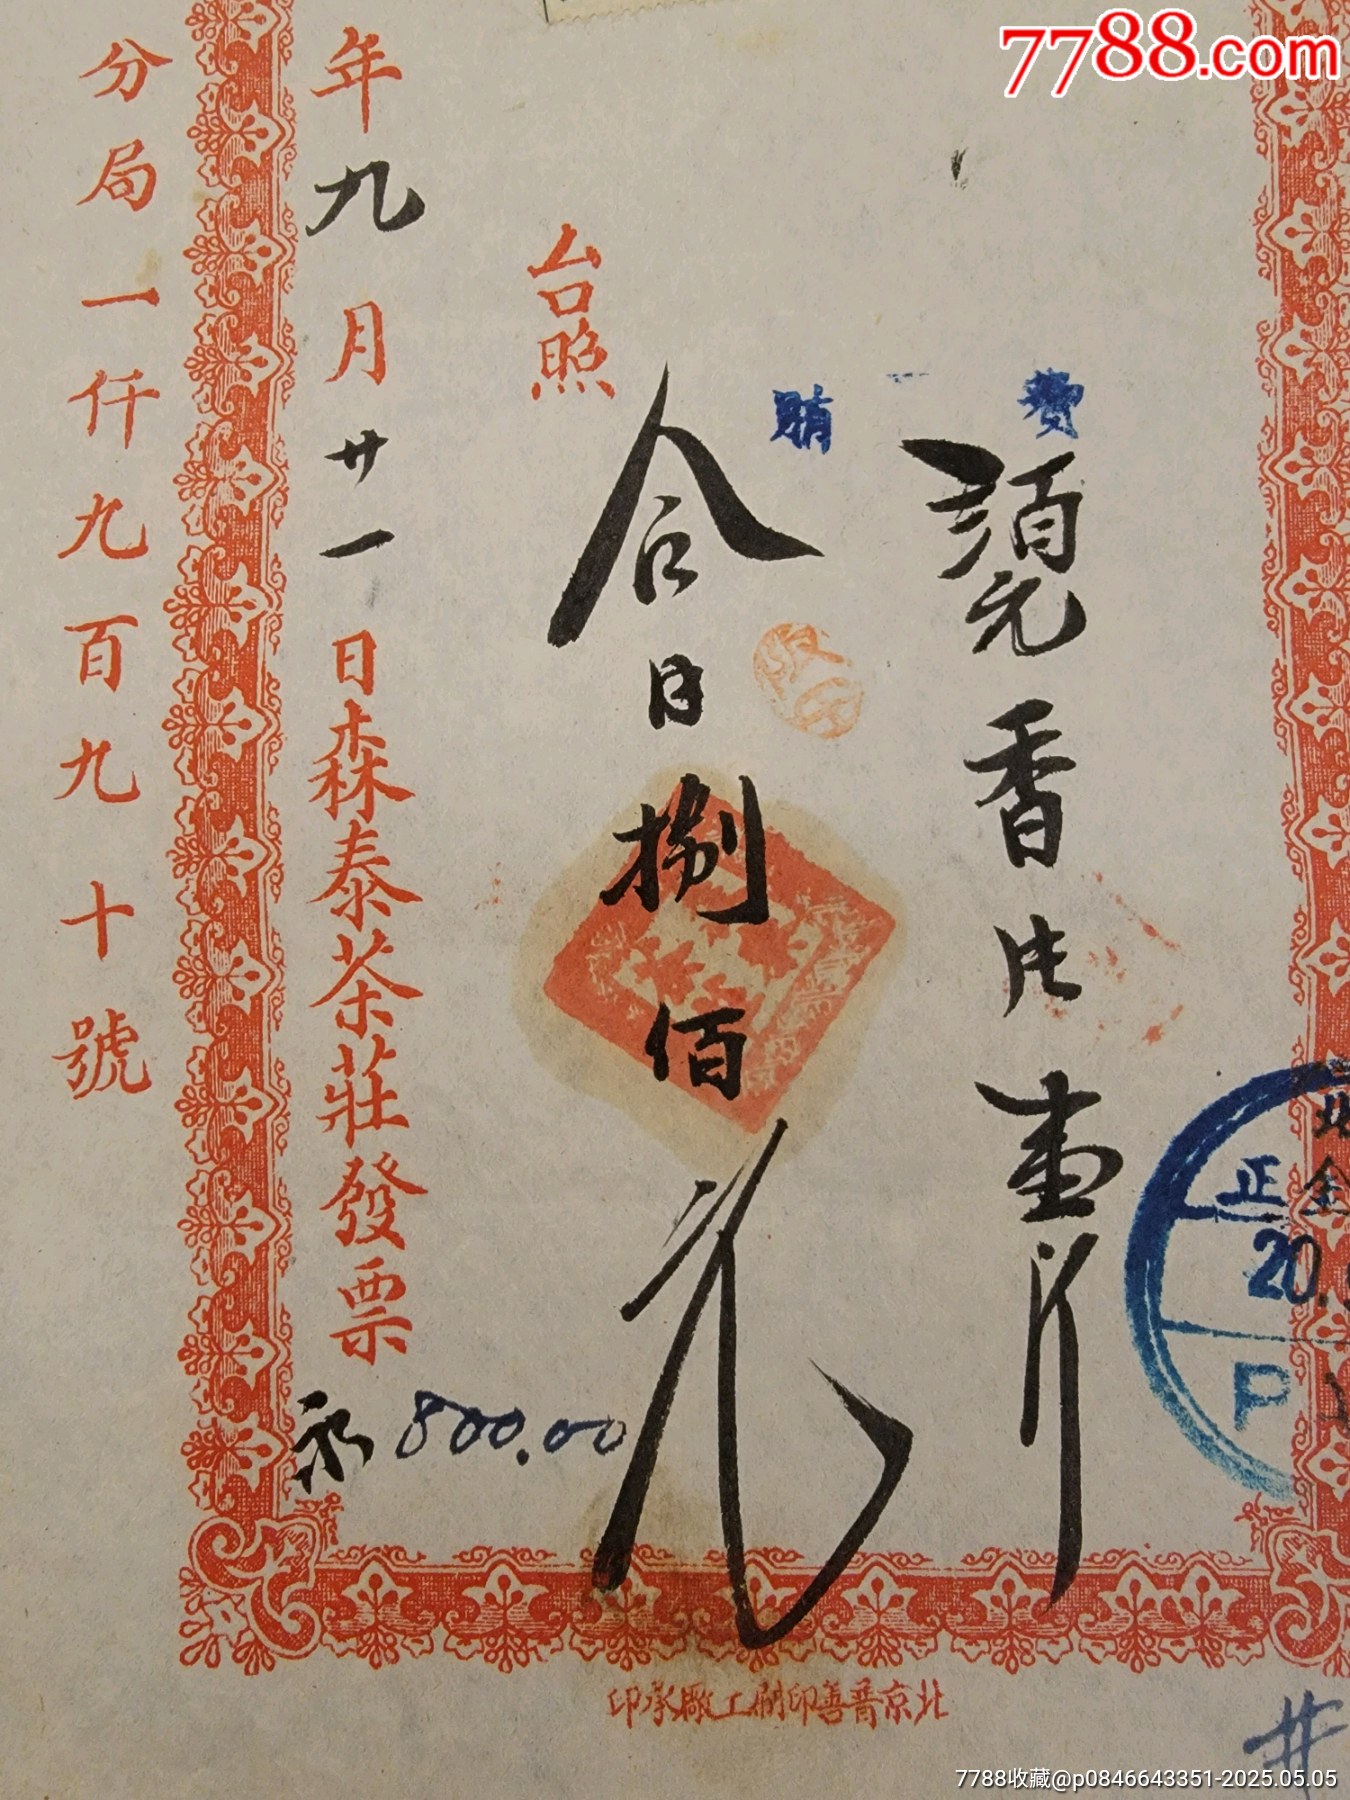 7788.com
費
香片壹斤
售
合日捌佰元
台照
年九月廿一日森泰茶莊發票
800.00
分局一仟九百九十號
正金
20.
P
北京普善印刷工廠承印
7788收藏@p0846643351-2025.05.05